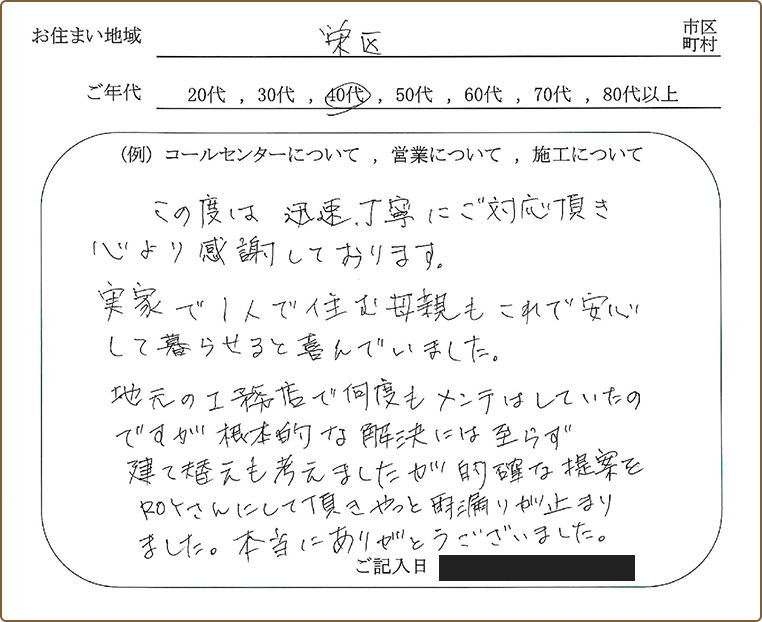 お住まい地域 栄区 市区町村
ご年代 20代 , 30代 , 40代 , 50代 , 60代 , 70代 , 80代以上
(例) コールセンターについて , 営業について , 施工について
この度は 迅速、丁寧にご対応頂き
心より感謝しております。
実家で1人で住む母親もこれで安心
して暮らせると喜んでいました。
地元の工務店で何度もメンテはしていたの
ですが根本的な解決には至らず
建て替えも考えましたが的確な提案を
ROYさんにして頂きやっと雨漏りが止まり
ました。本当にありがとうございました。
ご記入日